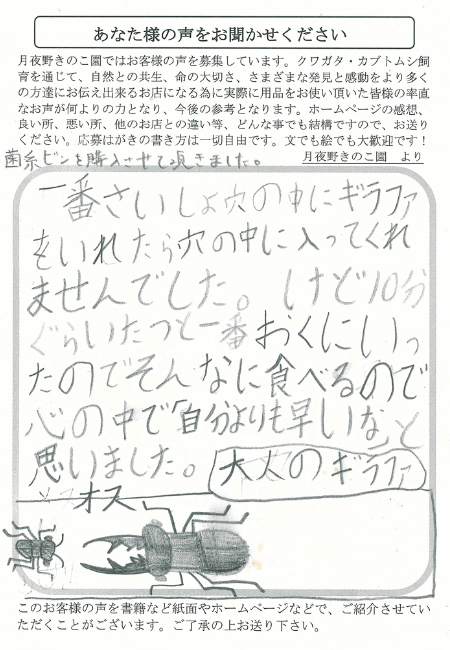 あなた様の声をお聞かせください
月夜野きのこ園ではお客様の声を募集しています。クワガタ・カブトムシ飼
育を通じて、自然との共生、命の大切さ、さまざまな発見と感動をより多く
の方達にお伝え出来るお店になる為に実際に用品をお使い頂いた皆様の率直
なお声が何よりの力となり、今後の参考となります。ホームページの感想、
良い所、悪い所、他のお店との違い等、どんな事でも結構ですので、お送り
ください。応募はがきの書き方は一切自由です。文でも絵でも大歓迎です！
菌糸ビンを購入させて頂きました。
月夜野きのこ園 より
一番さいしょ穴の中にギラファ
をいれたら穴の中に入ってくれ
ませんでした。けど10分
ぐらいたつと一番おくにいっ
たのでそんなに食べるので
心の中で「自分よりも早いなと
思いました。
大人のギラファ
オス
このお客様の声を書籍など紙面やホームページなどで、ご紹介させてい
ただくことがございます。ご了承の上お送り下さい。